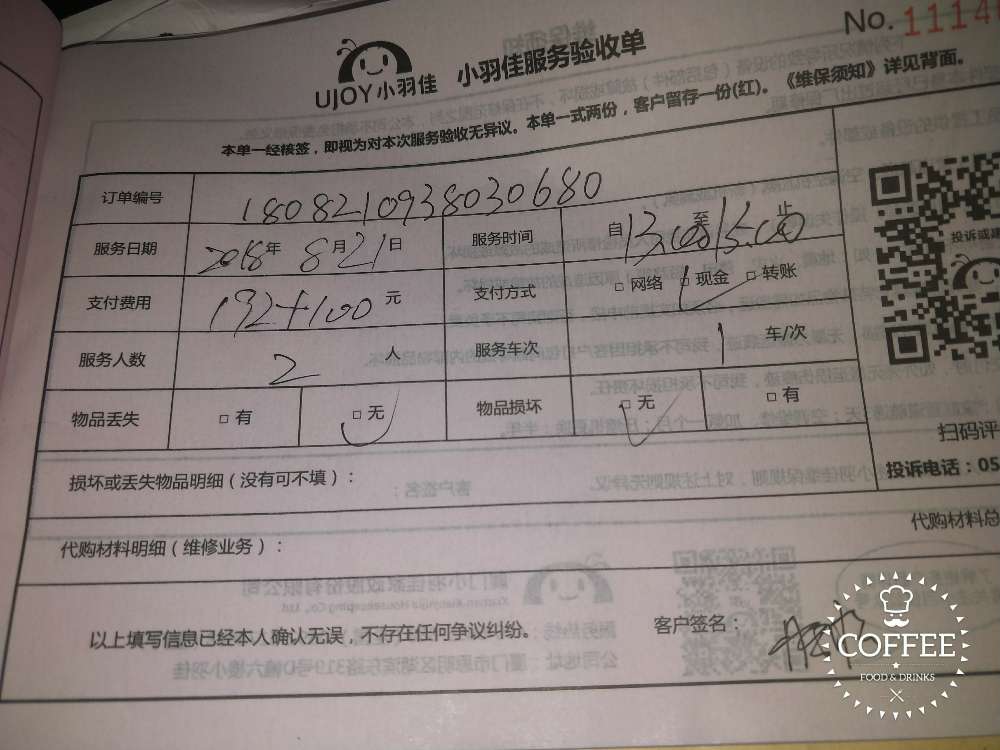 No. 1114
UJOY小羽佳 小羽佳服务验收单
本单一经核签，即视为对本次服务验收无异议。本单一式两份，客户留存一份(红)。《维保须知》详见背面。
订单编号 1808210938030680
服务日期 2018年 8月21日 服务时间 自13:00至15:00止
支付费用 192+100 元 支付方式 □ 网络 □ 现金 □ 转账
服务人数 2 人 服务车次 1 车/次
物品丢失 □ 有 □ 无 物品损坏 □ 无 □ 有
投诉或建
扫码评
损坏或丢失物品明细（没有可不填）：
投诉电话：05
代购材料总
代购材料明细（维修业务）：
以上填写信息已经本人确认无误，不存在任何争议纠纷。 客户签名：
COFFEE
FOOD & DRINKS